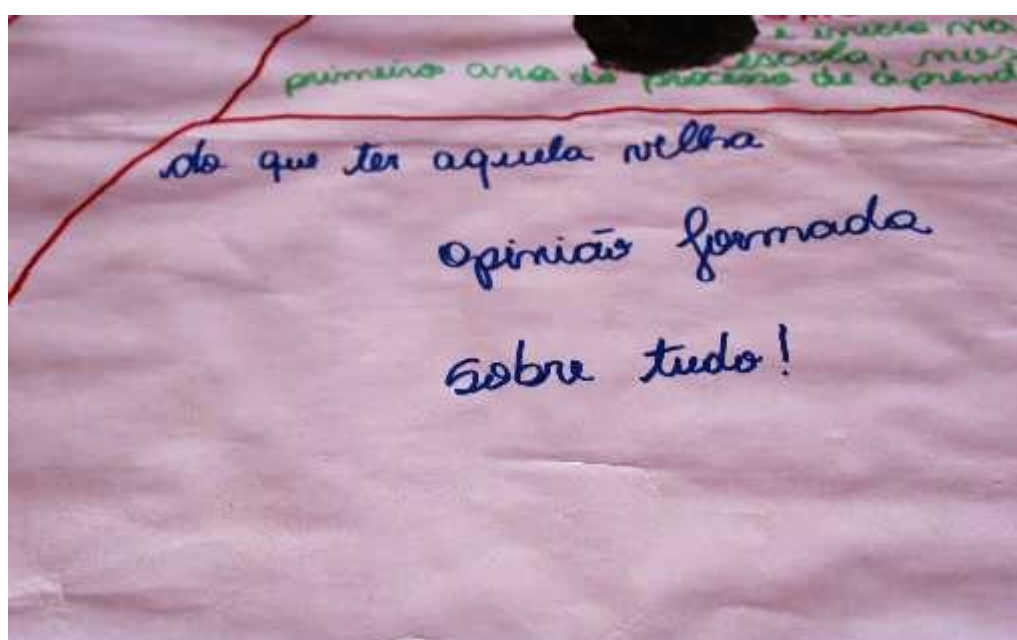 e
escola, nos
primeiro ano do processo de
do que ter aquela velha
opinião formada
sobre tudo!